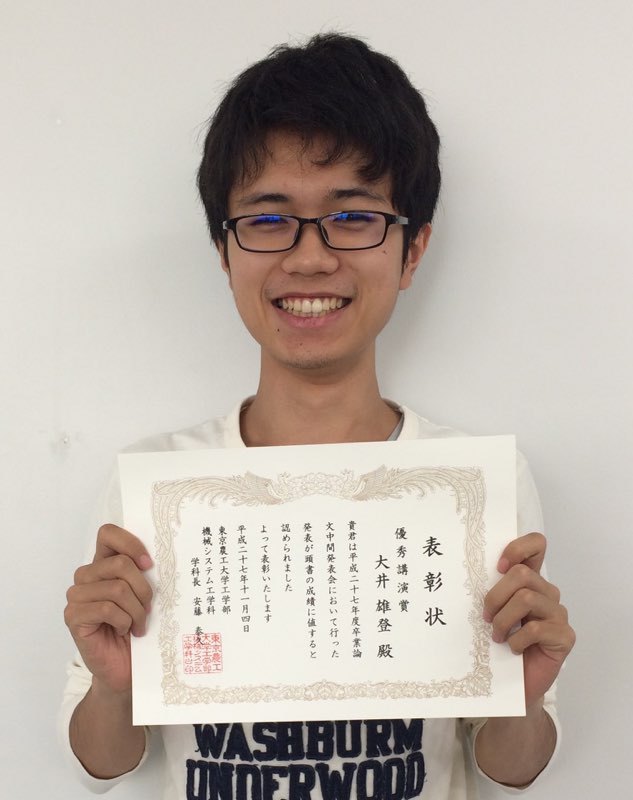 表彰状
優秀講演賞
大井雄登 殿
貴君は平成二十七年度卒業論
文中間発表会において行った
発表が頭書の成績に値すると
認められました
よって表彰いたします
平成二十七年十一月四日
東京農工大学工学部
機械システム工学科
学科長 安藤 泰久
東京農工
大学工学部
機械システム
工学科之印
WASHBURM
UNDERWOOD